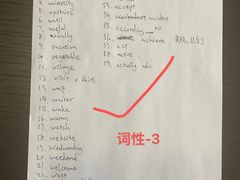 4. university
5. upstairs
6. until
7. useful
8. usually
9. vacation
10. vegetable
11. village
12. visit v. 访问
13. wait
14. waiter
15. wake
16. wang
17. watch
18. website
19. Wednesday
20. weekend
21. welcome
22. west
33. accept
34. accident
35. according to
36. achieve
37. act
38. active
39. actually adv.
词性-3